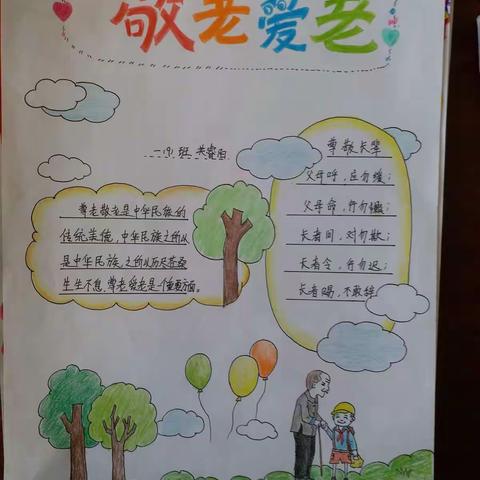 敬老爱老
一.(9).班
尊敬长辈
父母呼，应勿缓；
父母命，行勿懒；
长者问，对勿欺；
长者令，行勿迟；
长者赐，不敢辞。
尊老敬老是中华民族的
传统美德，中华民族之所以
是中华民族，之所以历尽苍桑
生生不息，尊老敬老是一个重要方面。